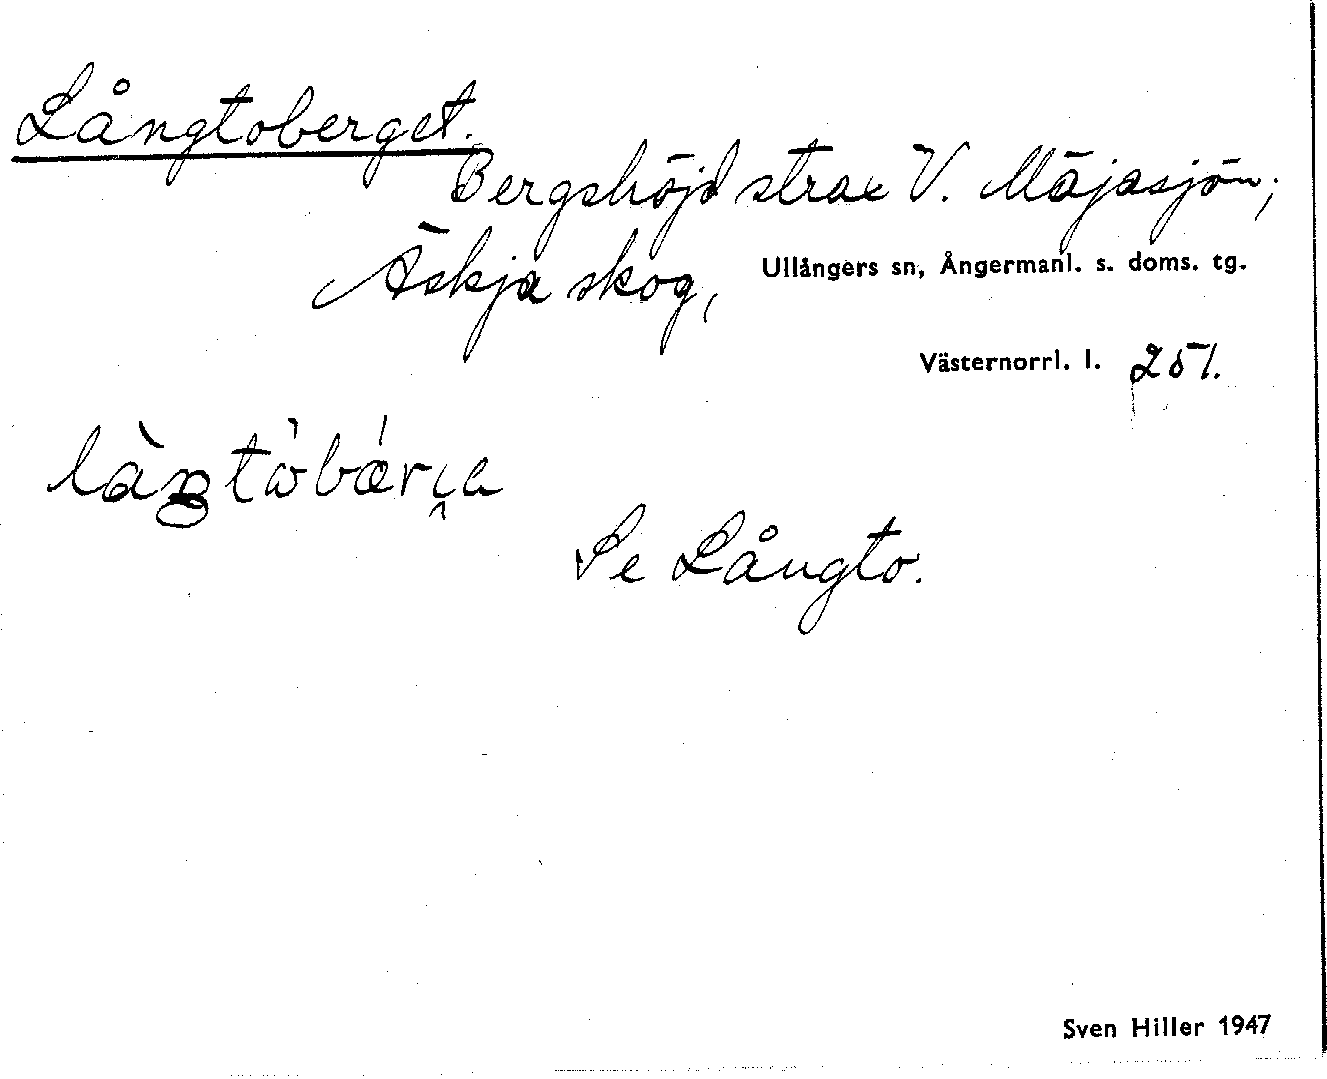 Långtoberget.
Bergshöjd strax V. Mäjasjön;
Äskja skog, Ullångers sn, Ångermanl. s. doms. tg.
Västernorrl. l. 251.
Se Långto.
Sven Hiller 1947